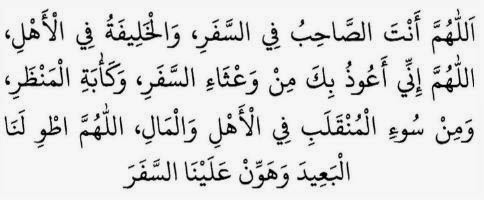 اَللّٰهُمَّ أَنْتَ الصَّاحِبُ فِي السَّفَرِ، وَالْخَلِيفَةُ فِي الْأَهْلِ،
اللّٰهُمَّ إِنِّي أَعُوذُ بِكَ مِنْ وَعْثَاءِ السَّفَرِ، وَكَأٰبَةِ الْمَنْظَرِ،
وَمِنْ سُوءِ الْمُنْقَلَبِ فِي الْأَهْلِ وَالْمَالِ، اللّٰهُمَّ اطْوِ لَنَا
الْبَعِيدَ وَهَوِّنْ عَلَيْنَا السَّفَرَ